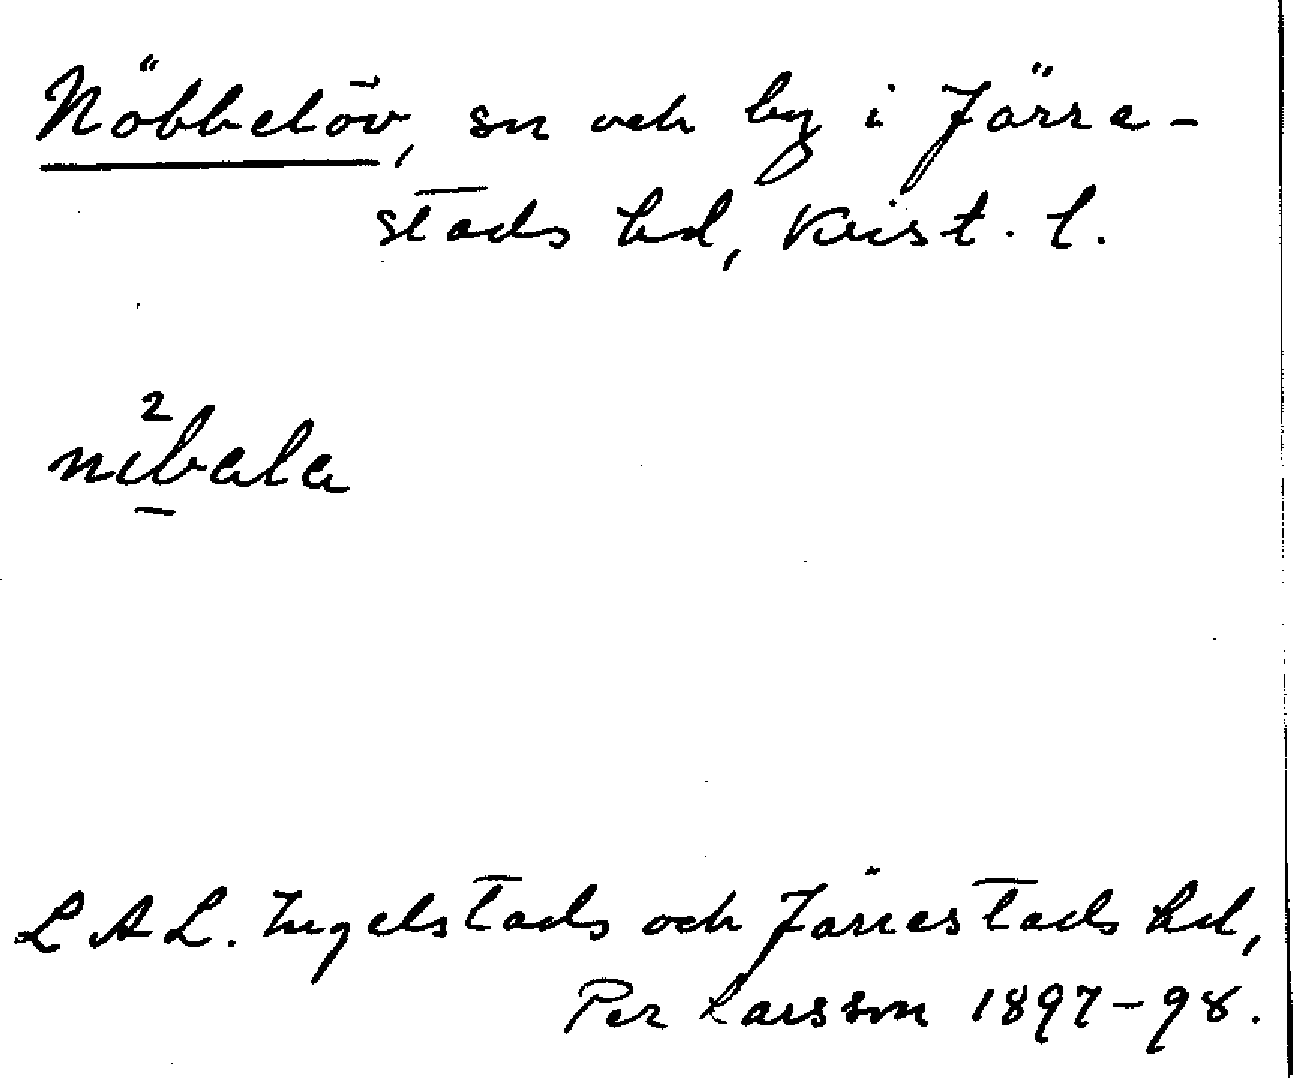 Nöbbelöv, sn och by i Järre-
stads hd, Krist. l.
2
nibala
L A L. Ingelstads och Järrestads hd,
Per Larsson 1897-98.